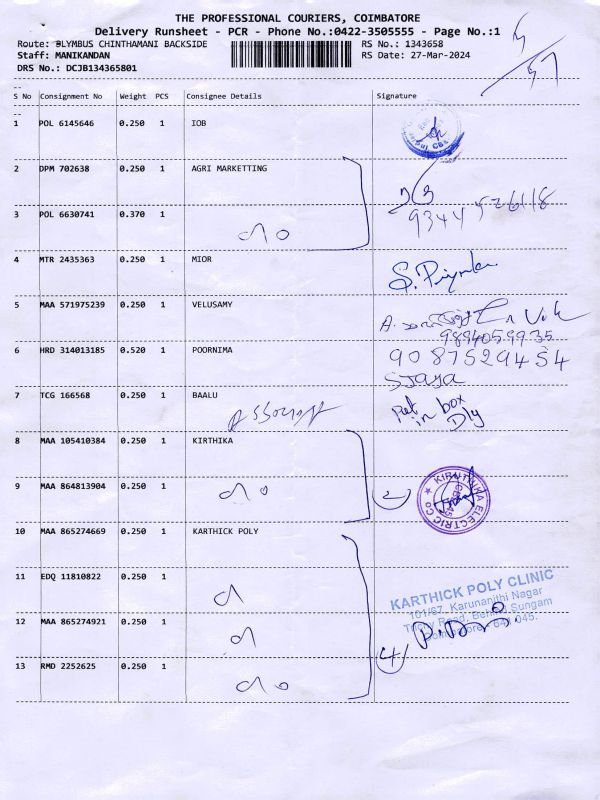 THE PROFESSIONAL COURIERS, COIMBATORE
Delivery Runsheet - PCR - Phone No.:0422-3505555 - Page No.:1
Route: OLYMBUS CHINTHAMANI BACKSIDE
RS No.: 1343658
Staff: MANIKANDAN
RS Date: 27-Mar-2024
DRS No.: DCJB134365801
S No Consignment No Weight PCS Consignee Details Signature
1 POL 6145646 0.250 1 IOB
2 DPM 702638 0.250 1 AGRI MARKETTING
3 POL 6630741 0.370 1
9344526118
4 MTR 2435363 0.250 1 MIOR
S. Priyanka
5 MAA 571975239 0.250 1 VELUSAMY
9894059935
6 HRD 314013185 0.520 1 POORNIMA
9087529454
SJaya
7 TCG 166568 0.250 1 BAALU
Put in box Dly
8 MAA 105410384 0.250 1 KIRTHIKA
9 MAA 864813904 0.250 1
2
KIRUTHIKA ELECTRIC CO
10 MAA 865274669 0.250 1 KARTHICK POLY
11 EDQ 11810822 0.250 1
KARTHICK POLY CLINIC
101/67, Karunanithi Nagar
Trichy Road, Behind Sungam
Coimbatore - 641 045.
12 MAA 865274921 0.250 1
4
13 RMD 2252625 0.250 1